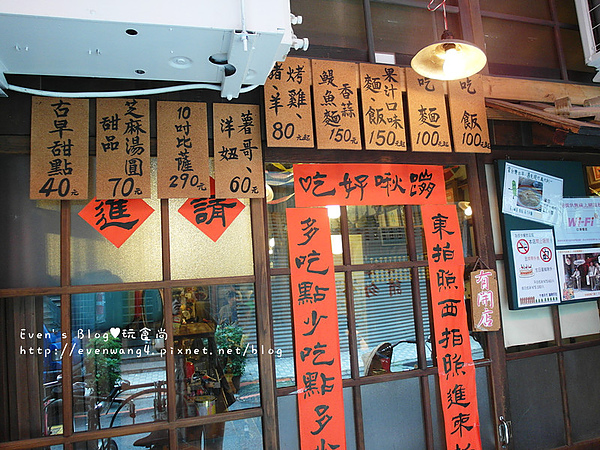 古早甜點
40元
芝麻湯圓
甜品
70元
10吋比薩
290元
薯哥、
洋妞、
60元
烤雞、
豬、羊
80元起
香蒜
鯷魚麵
150元
果汁口味
麵、飯
150元起
吃麵
100元起
吃飯
100元起
請
進
吃好啾蹦
東拍照西拍照進來
多吃點少吃點多
有開店
Wi-Fi
Even's Blog♥玩食尚
http://evenwang4.pixnet.net/blog